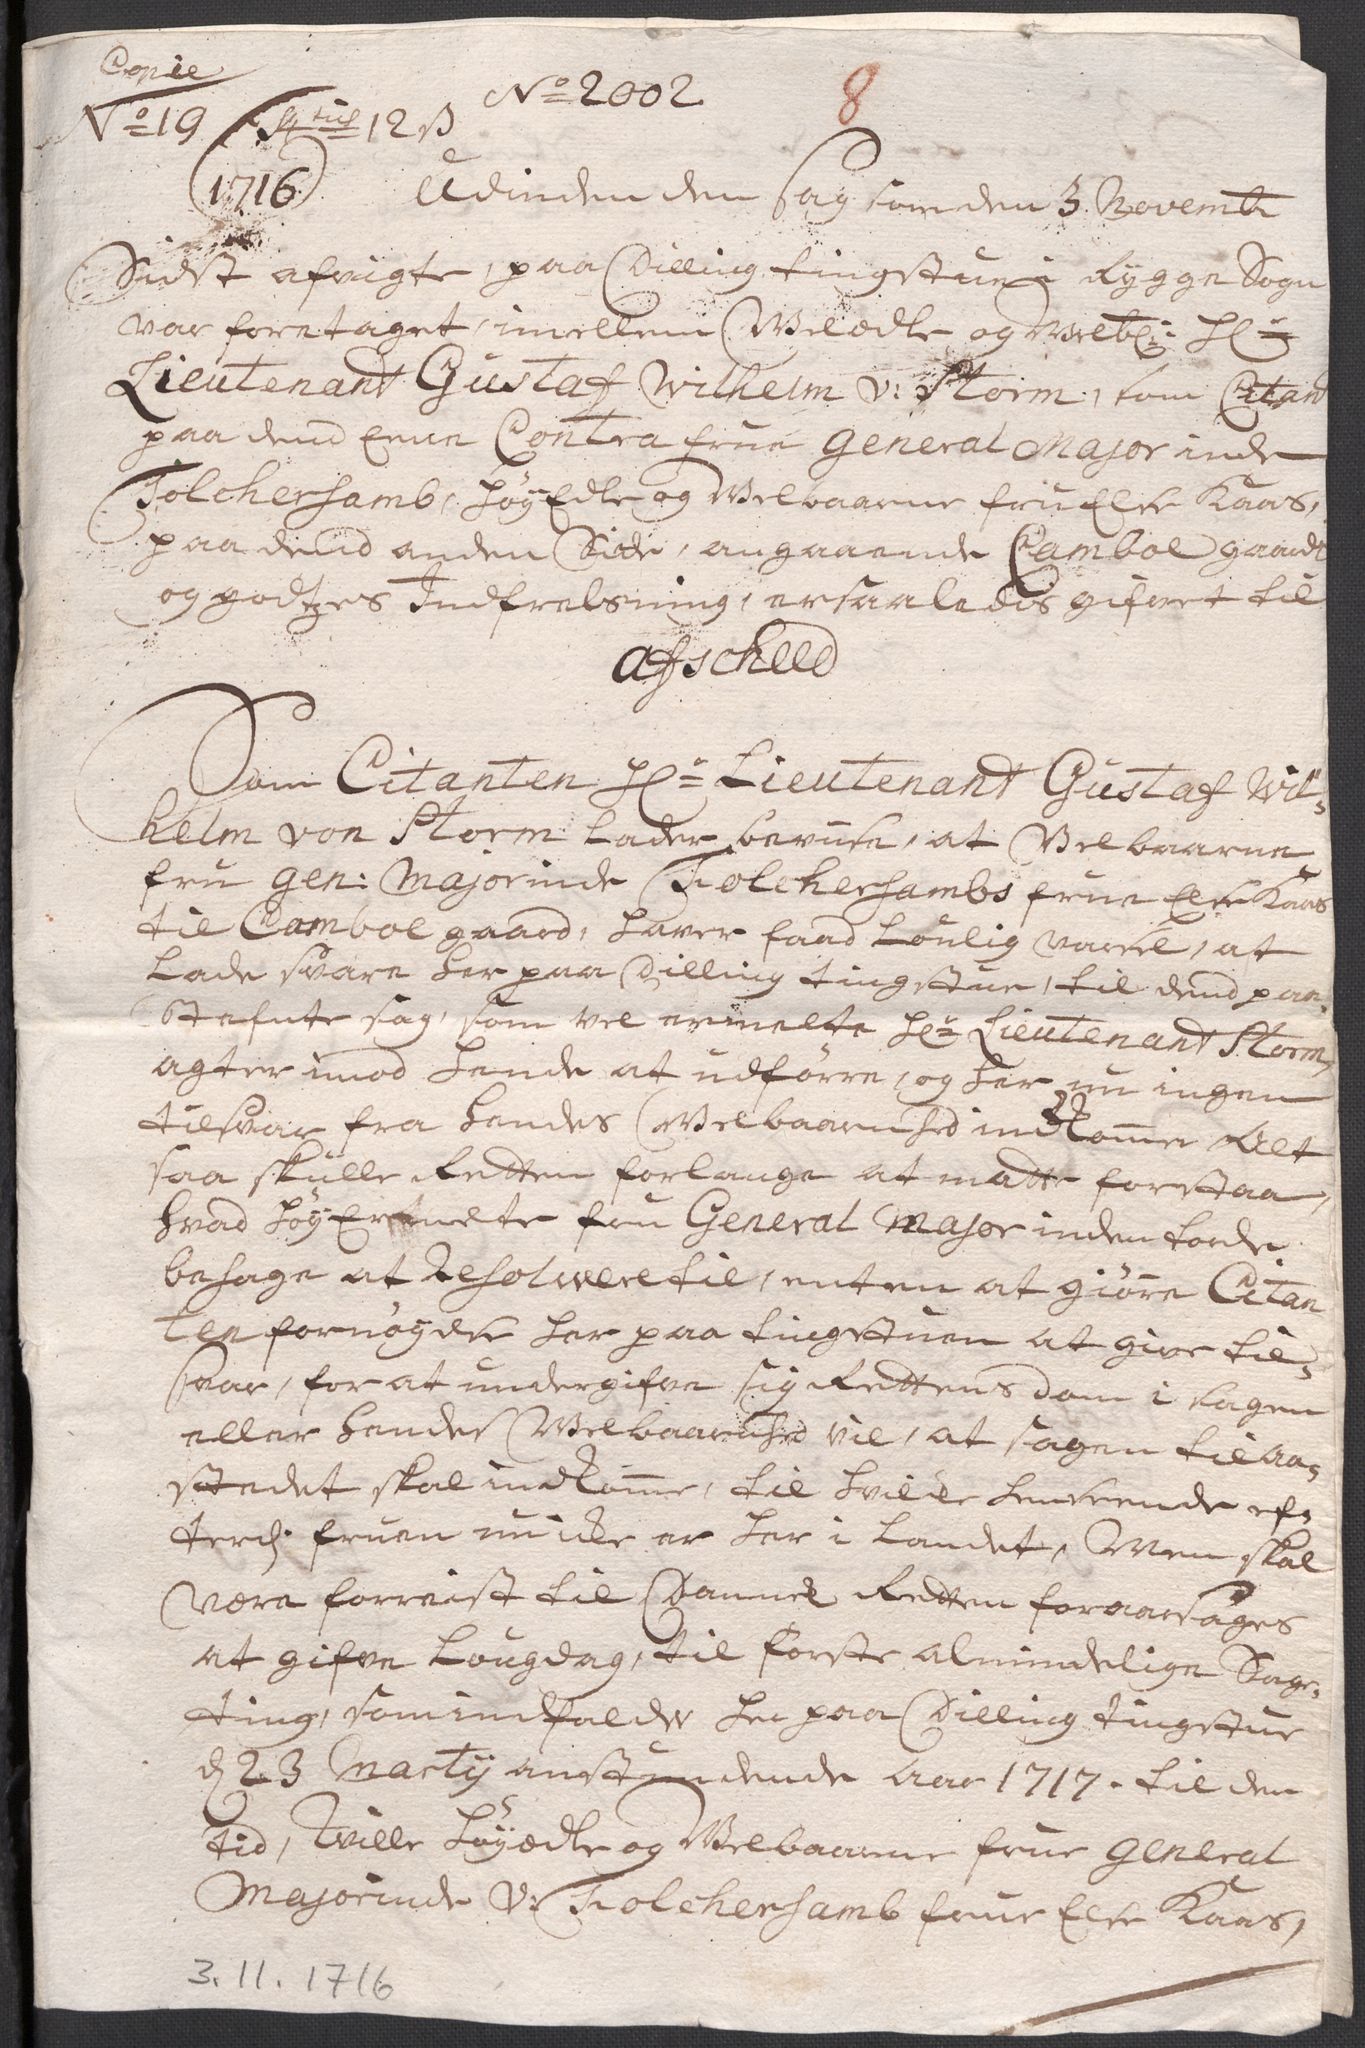 Copie
No 19 12 ß No 2002 8
1716 Udinden den Sag som den 3 Novemb
Sidst afvigte, paa Dilling tingstue i Rygge Sogn
var foretaget, imellem Welædle og Welb: Hr
Lieutenant Gustaf Wilhelm v: Storm, som Citant
paa dend Eene Contra frue General Major inde
Tolchersamb, HøyEdle og Welbaarne frue Else Kaas,
paa dend anden Side, angaaende Cambol gaardt
og godtzes Indfrelsning, er saaledis gifvet til
afscheed
Som Citanten Hr Lieutenant Gustaf Wil-
helm von Storm lader bevise, at Velbaarne
fru Gen: Majorinde Tolchersambs frue Else Kaas
til Cambol gaard, haver faad Loulig varsel, at
lade svare her paa Dilling tingstue, til dend paa
stefnte sag, som vel ermelte Hr Lieutenant Storm
agter imod hende at udførre, og her nu ingen
tilsvar fra hendes Welbaarnhed indkomme Alt
saa skulle Retten forlange at matte forstaa,
hvad høyErmelte fru General Major inden torde
behage at Resolvere til, enten at giøre Citan
ten fornøyelse her paa tingstuen at give til-
svar, for at undergifve sig Rettens dom i sagen
eller hendes Welbaarnhed vil, at sagen til aa-
stedet skal indkomme, til hvilke henseende ef-
terdj fruen nu icke er her i Landet, Men skal
være forreist til Danmk Retten foraarsages
at gifve Lougdag, til første almindelige Sage-
ting, som indfalder her paa Dilling tingstue
d 23 Marty anstundende Aar 1717. til den
tid, Wille Høyædle og Welbaarne frue General
Majorinde v: Tolchersamb frue Else Kaas,
3.11.1716